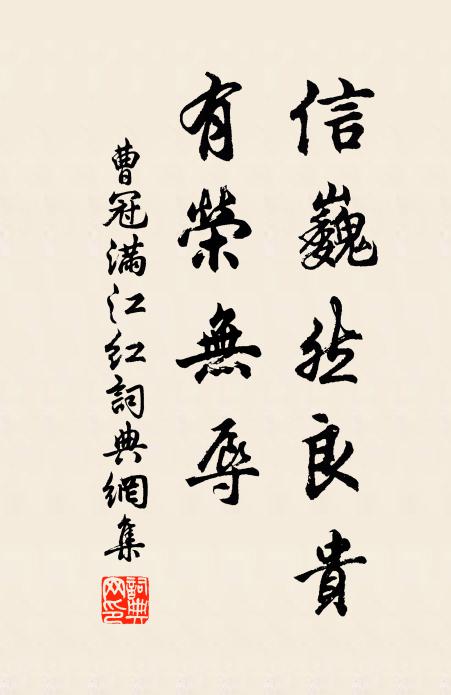 信巍然良貴
有榮無辱
曹冠滿江紅詞典網集
詞典网印